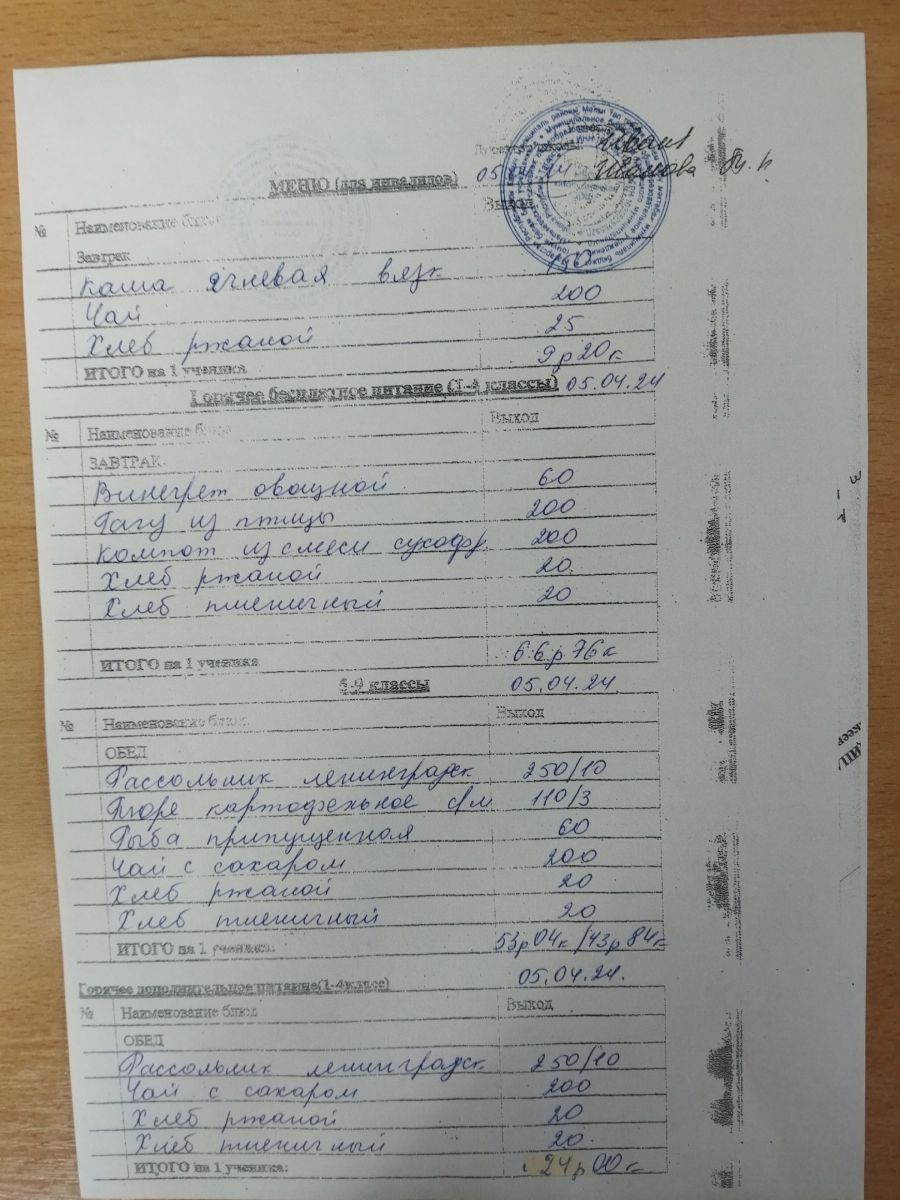 Директор школы Иван
МЕНЮ (для инвалидов) 05 24 Иванова
Выход
№ Наименование блюд
Завтрак
Каша ячневая вязк 150
Чай 200
Хлеб ржаной 25
ИТОГО на 1 ученика 9р20к
Горячее бесплатное питание (1-4 классы) 05.04.24
№ Наименование блюд Выход
ЗАВТРАК
Винегрет овощной 60
Рагу из птицы 200
Компот из смеси сухофр. 200
Хлеб ржаной 20
Хлеб пшеничный 20
ИТОГО на 1 ученика 66р76к
5-9 классы 05.04.24
№ Наименование блюд Выход
ОБЕД
Рассольник ленинградск 250/10
Пюре картофельное с/м 110/3
Рыба припущенная 60
Чай с сахаром 200
Хлеб ржаной 20
Хлеб пшеничный 20
ИТОГО на 1 ученика: 53р04к/43р84к
05.04.24.
Горячее дополнительное питание(1-4 класс)
№ Наименование блюд Выход
ОБЕД
Рассольник ленинградск. 250/10
Чай с сахаром 200
Хлеб ржаной 20
Хлеб пшеничный 20
ИТОГО на 1 ученика: 24р00к